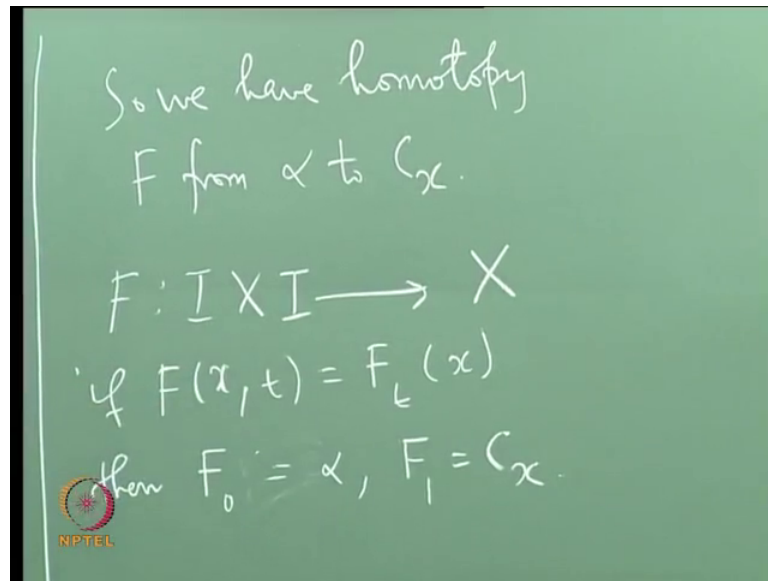 So we have homotopy
F from α to Cx.
F : I X I ⟶ X
if F(x, t) = F_t (x)
then F_0 = α, F_1 = Cx.
NPTEL